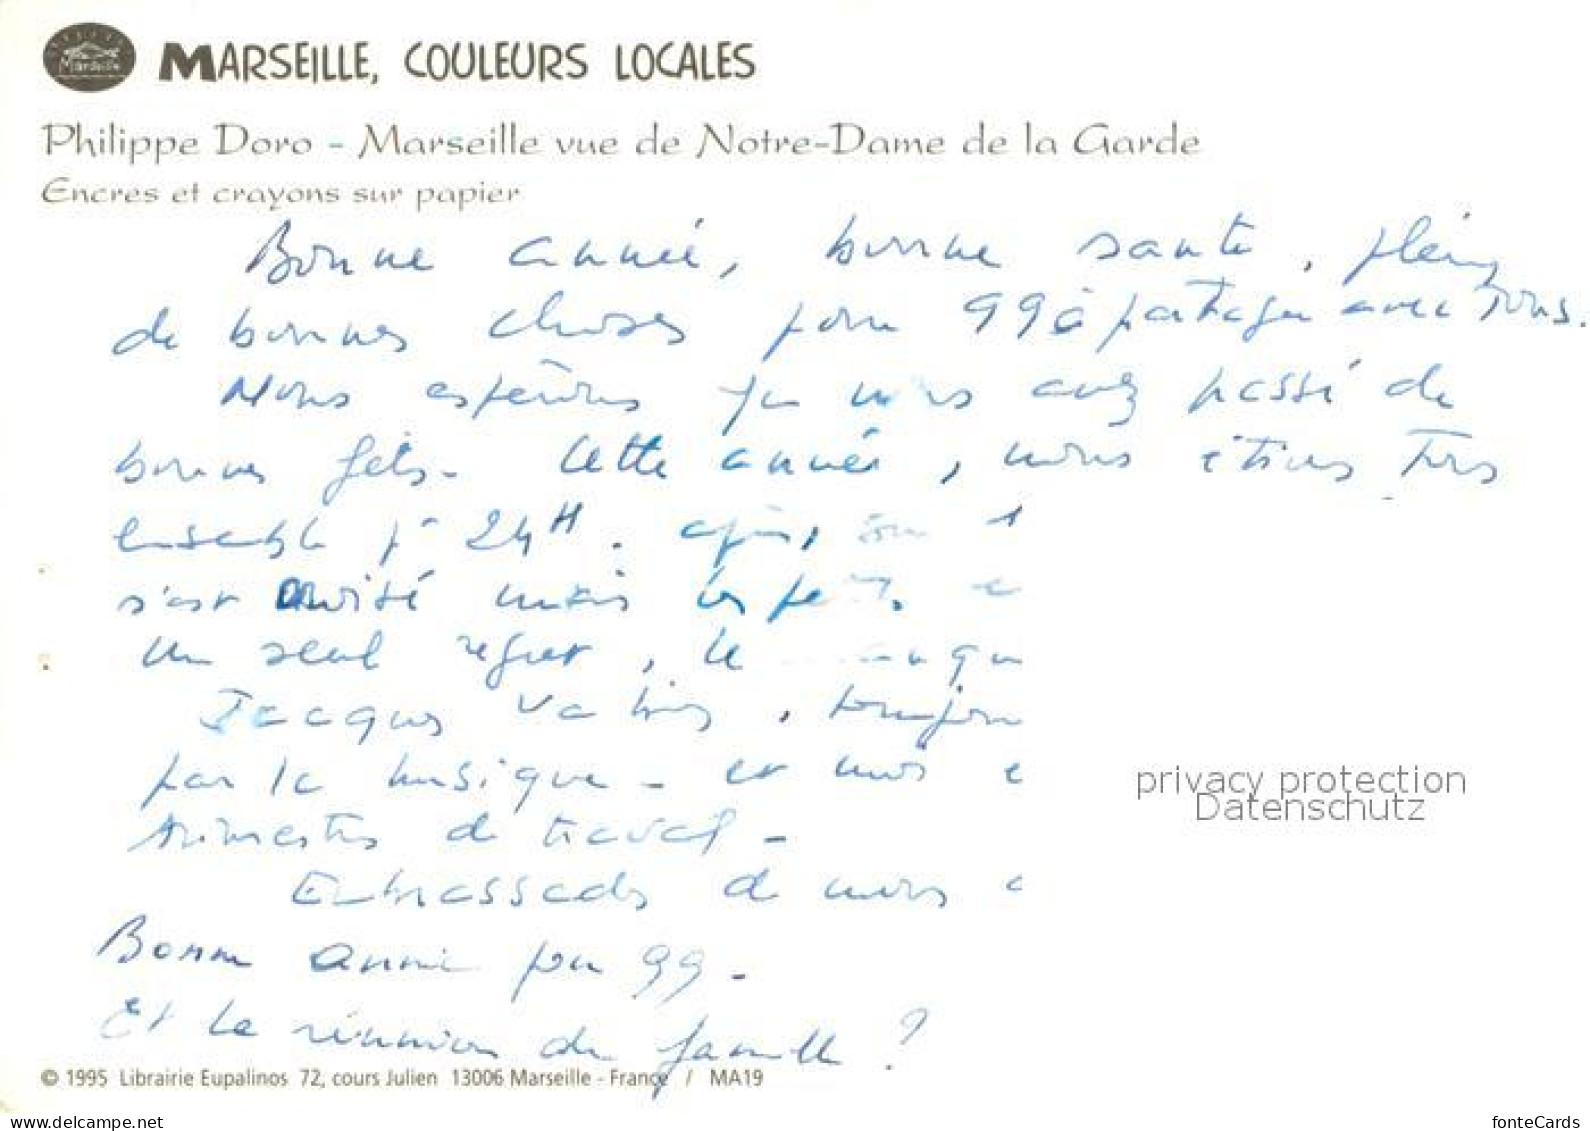 Marseille
MARSEILLE, COULEURS LOCALES
Philippe Doro - Marseille vue de Notre-Dame de la Garde
Encres et crayons sur papier
Bonne année, bonne santé, pleins
de bonnes choses pour 99 à partager avec tous.
Nous espérons que vous avez passé de
bonnes fêtes. Cette année, nous étions tous
ensemble pr 24H.
s'est invité mais
Un seul regret, le
Jacques
par la musique - et
trimestres de travail -
Embrassades de nous
Bonne année pour 99 -
Et la réunion de famille ?
© 1995 Librairie Eupalinos 72, cours Julien 13006 Marseille - France / MA19
privacy protection
Datenschutz
www.delcampe.net
fonteCards